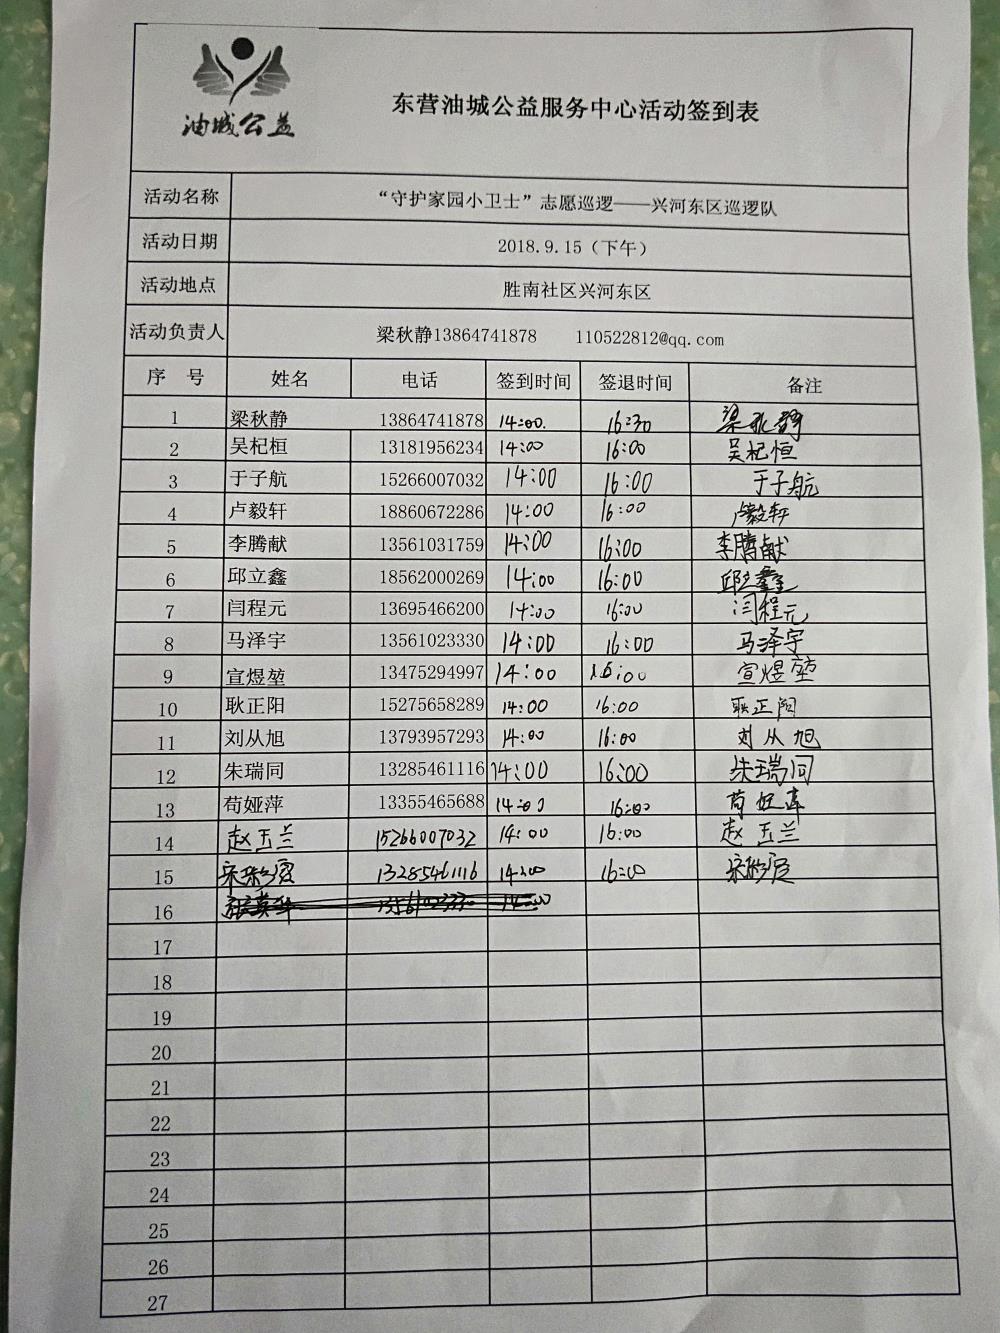 油城公益
东营油城公益服务中心活动签到表
活动名称 “守护家园小卫士”志愿巡逻——兴河东区巡逻队
活动日期 2018.9.15（下午）
活动地点 胜南社区兴河东区
活动负责人 梁秋静13864741878 110522812@qq.com
序 号 姓名 电话 签到时间 签退时间 备注
1 梁秋静 13864741878 14:00. 16:30 梁秋静
2 吴杞桓 13181956234 14:00 16:00 吴杞恒
3 于子航 15266007032 14:00 16:00 于子航
4 卢毅轩 18860672286 14:00 16:00 卢毅轩
5 李腾献 13561031759 14:00 16:00 李腾献
6 邱立鑫 18562000269 14:00 16:00 邱立鑫
7 闫程元 13695466200 14:00 16:00 闫程元
8 马泽宇 13561023330 14:00 16:00 马泽宇
9 宣煜堃 13475294997 14:00 16:00 宣煜堃
10 耿正阳 15275658289 14:00 16:00 耿正阳
11 刘从旭 13793957293 14:00 16:00 刘从旭
12 朱瑞同 13285461116 14:00 16:00 朱瑞同
13 苟娅萍 13355465688 14:00 16:00 苟娅萍
14 赵玉兰 15266007032 14:00 16:00 赵玉兰
15 13285461116 14:00 16:00
16 14:00
17
18
19
20
21
22
23
24
25
26
27